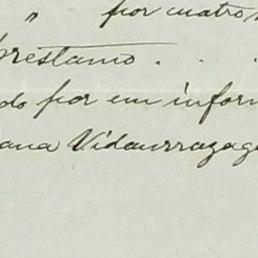 " por cuatro
préstamo . .
do por un infor
ana Vidaurrazaga